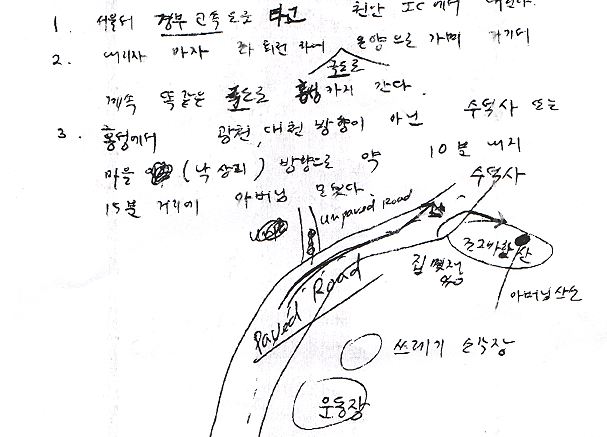 1. 서울서 경부 고속도로 타고 천안 IC에서 내린다.
2. 내리자 마자 좌회전 하여 온양으로 가며 거기서
국도로
계속 똑같은 국도로 홍성까지 간다.
3. 홍성에서 광천, 대천 방향이 아닌 수덕사 또는
마을 (낙상리) 방향으로 약 10분 내지
15분 거리에 아버님 묘 있다.
수덕사
unpaved Road
Paved Road
집 몇 채
조그마한 산
아버님 산소
쓰레기 소각장
운동장